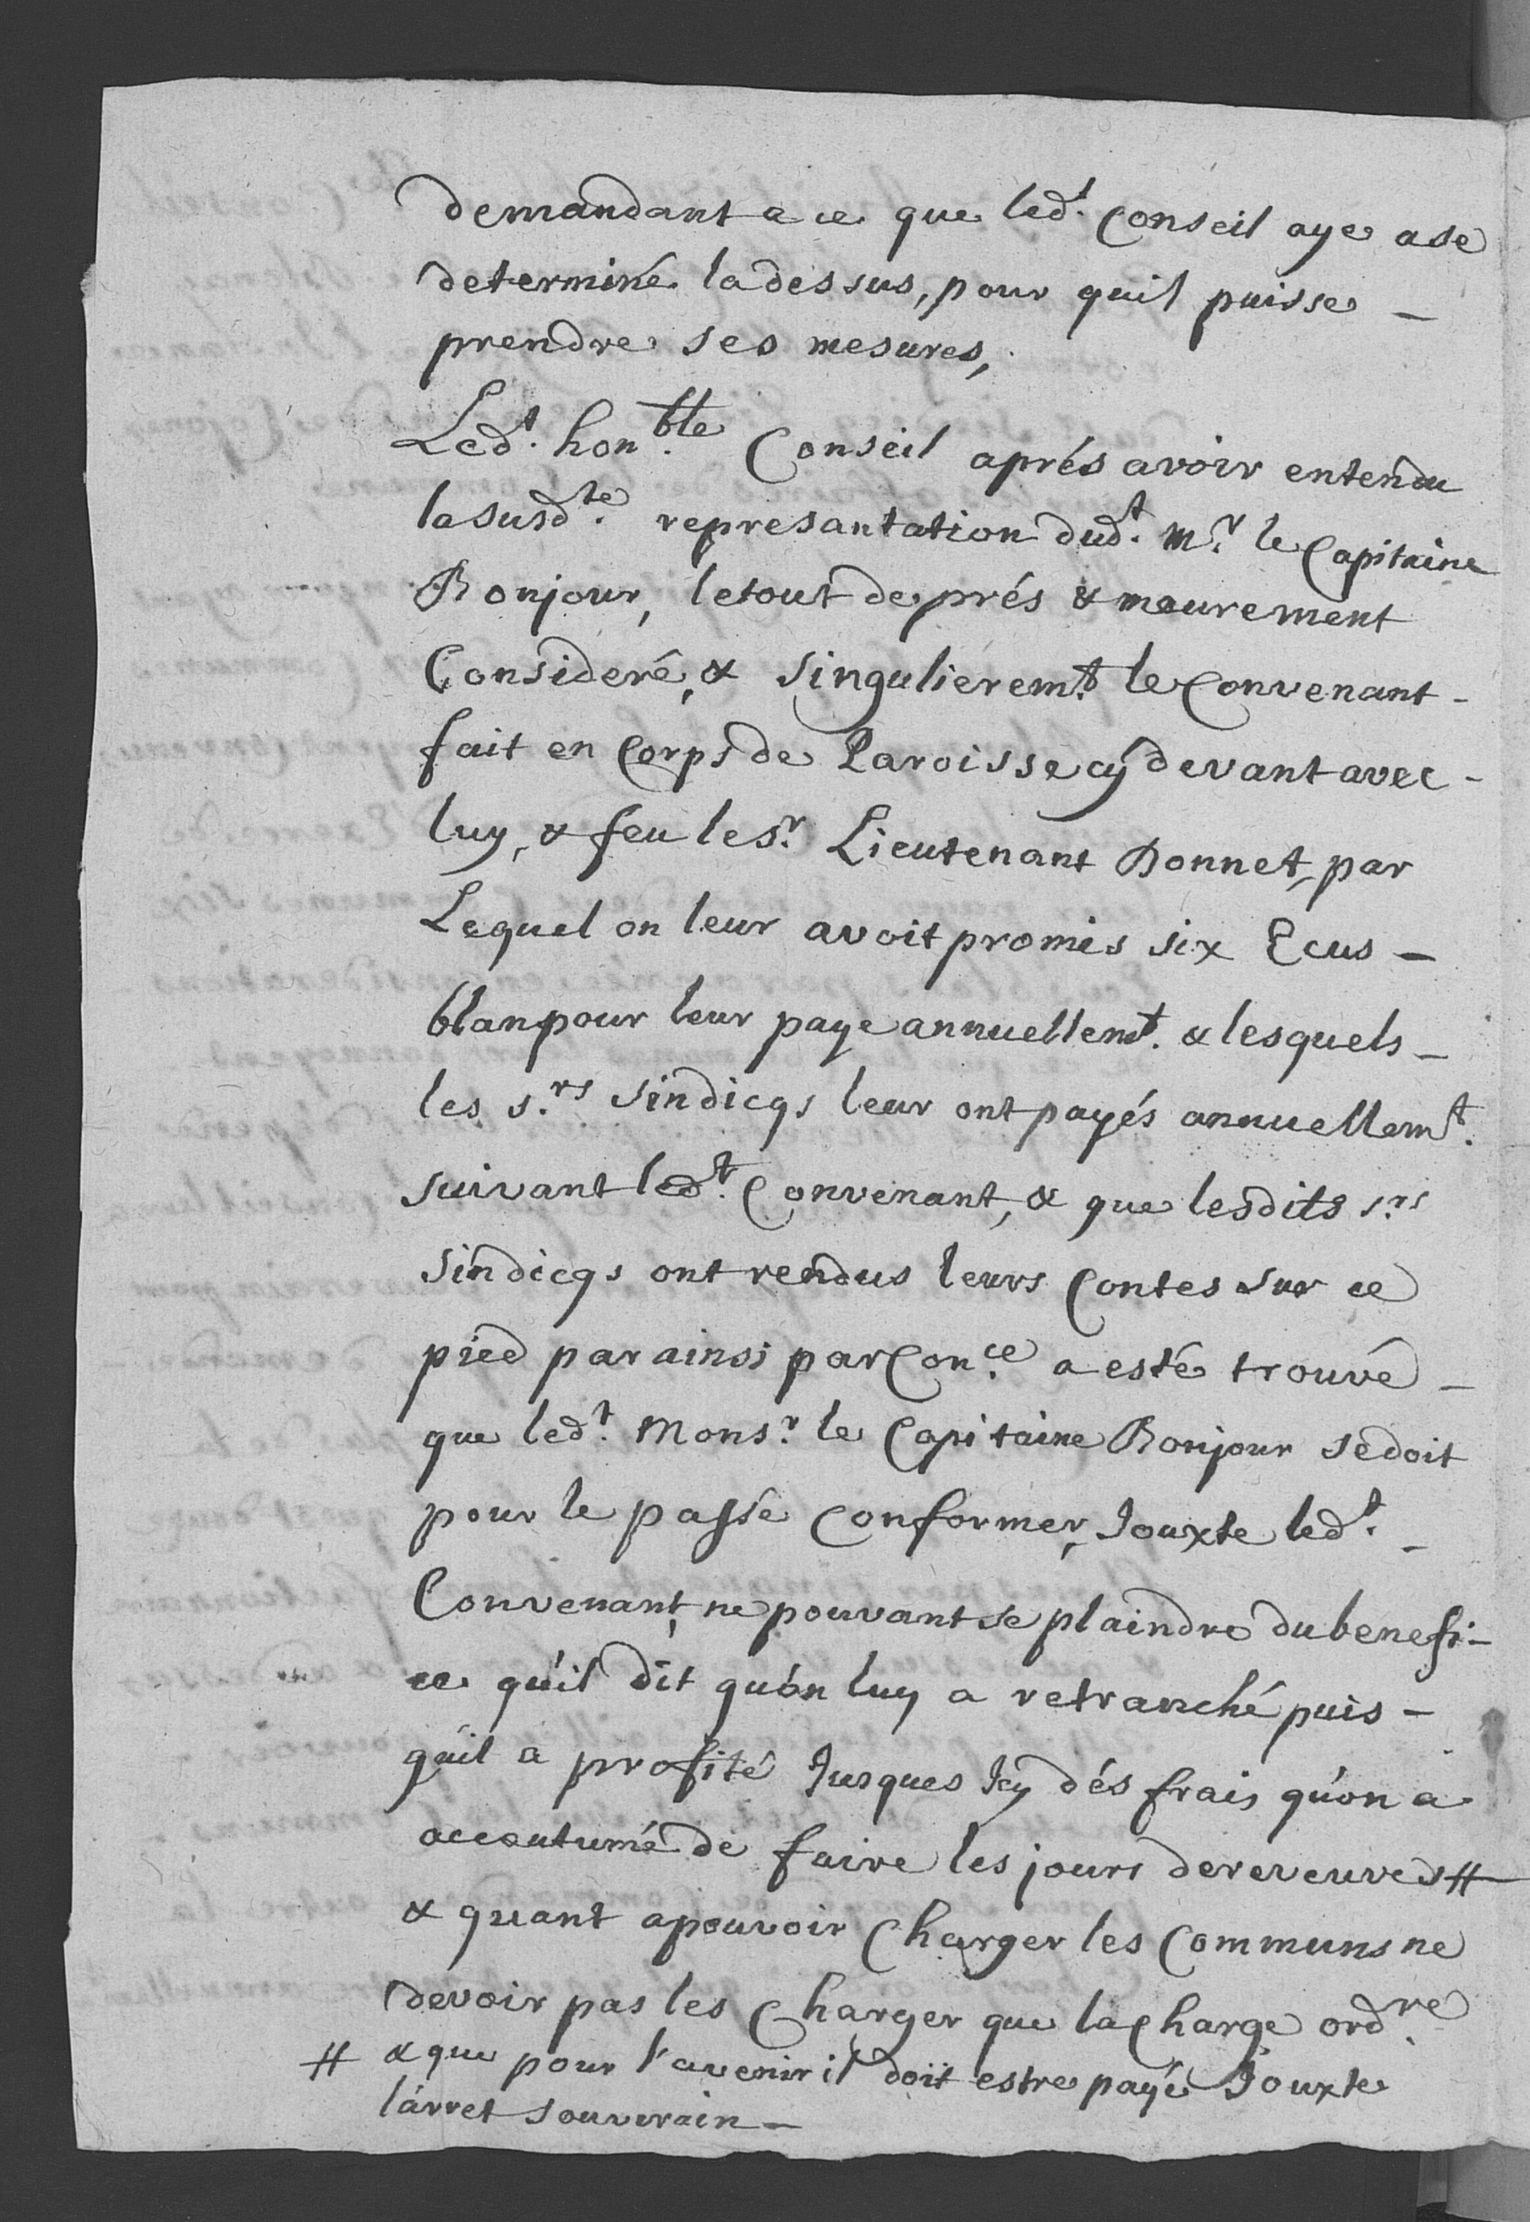 demandant a ce que led.t Conseil aye a se
determiné la dessus, pour quil puisse _
prendre ses mesures,
Led.t hon.ble Conseil aprés avoir entendu
la susd.te represantation dud.t M.r le Capitaine
Bonjour, le tout de prés & meurement
Consideré, & singulierem.t le Convenant -
fait en Corps de Paroisse cy devant avec -
luy, & feu le S.r Lieutenant Bonnet, par
Lequel on leur avoit promis six Ecus -
blan pour leur paye annuellem.t & lesquels -
les s.rs sindicqs leur ont payés annuellem.t
suivant led.t Convenant, & que lesdits s.rs
sindicqs ont rendus leurs Contes sur ce
pied par ainsi par Con.ce a esté trouvé _
que led.t Mons.r le Capitaine Bonjour se doit
pour le passé Conformer, Jouxte led.t _
Convenant, ne pouvant se plaindre du benefi-
ce qu'il dit qu'on luy a retranché puis -
qu'il a profité Jusques Icy dés frais qu'on a
accoutumé de faire les jours de reveuves #
& quant a pouvoir Charger les Communs ne
devoir pas les Charger que la Charge ord.re
# & que pour l'avenir il doit estre payé Jouxte
l'arret souverain -